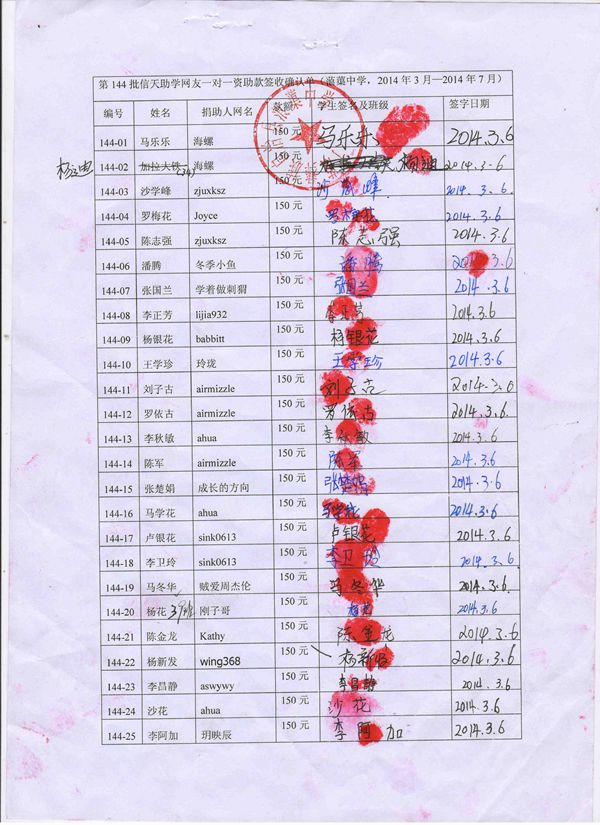 第 144 批信天助学网友一对一资助款签收确认单（菠萝中学，2014 年 3 月—2014 年 7 月）
编号 姓名 捐助人网名 款额 学生签名及班级 签字日期
144-01 马乐乐 海螺 150 元 马乐乐 2014.3.6
144-02 加拉大铁 海螺 150 元 2014.3.6
144-03 沙学峰 zjuxksz 150 元 沙学峰 2014.3.6
144-04 罗梅花 Joyce 150 元 罗梅花 2014.3.6
144-05 陈志强 zjuxksz 150 元 陈志强 2014.3.6
144-06 潘腾 冬季小鱼 150 元 潘腾 2014.3.6
144-07 张国兰 学着做刺猬 150 元 张国兰 2014.3.6
144-08 李正芳 lijia932 150 元 李正芳 2014.3.6
144-09 杨银花 babbitt 150 元 杨银花 2014.3.6
144-10 王学珍 玲珑 150 元 王学珍 2014.3.6
144-11 刘子古 airmizzle 150 元 刘子古 2014.3.6
144-12 罗依古 airmizzle 150 元 罗依古 2014.3.6
144-13 李秋敏 ahua 150 元 李秋敏 2014.3.6
144-14 陈军 airmizzle 150 元 陈军 2014.3.6
144-15 张楚娟 成长的方向 150 元 张楚娟 2014.3.6
144-16 马学花 ahua 150 元 马学花 2014.3.6
144-17 卢银花 sink0613 150 元 卢银花 2014.3.6
144-18 李卫玲 sink0613 150 元 李卫玲 2014.3.6
144-19 马冬华 贼爱周杰伦 150 元 马冬华 2014.3.6
144-20 杨花 刚子哥 150 元 杨花 2014.3.6
144-21 陈金龙 Kathy 150 元 陈金龙 2014.3.6
144-22 杨新发 wing368 150 元 杨新发 2014.3.6
144-23 李昌静 aswywy 150 元 李昌静 2014.3.6
144-24 沙花 ahua 150 元 沙花 2014.3.6
144-25 李阿加 玥映辰 150 元 李阿加 2014.3.6